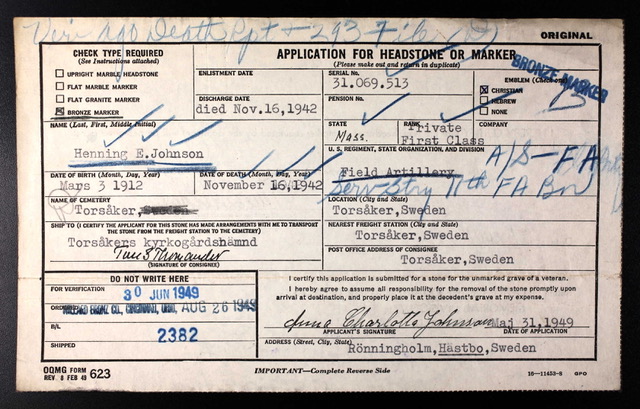 Death Rpt - 293 File
ORIGINAL
CHECK TYPE REQUIRED
(See Instructions attached)
UPRIGHT MARBLE HEADSTONE
FLAT MARBLE MARKER
FLAT GRANITE MARKER
BRONZE MARKER
ENLISTMENT DATE
DISCHARGE DATE
died Nov.16,1942
APPLICATION FOR HEADSTONE OR MARKER
(Please make out and return in duplicate)
SERIAL No.
31.069.513
PENSION No.
EMBLEM (Check one)
CHRISTIAN
HEBREW
NONE
BRONZE MARKER
STATE
Mass.
RANK
Private
First Class
COMPANY
NAME (Last, First, Middle Initial)
Henning E.Johnson
U. S. REGIMENT, STATE ORGANIZATION, AND DIVISION
Field Artillery
A/S-FA
Serv Btry 11th FA Bn
DATE OF BIRTH (Month, Day, Year)
Mars 3 1912
DATE OF DEATH (Month, Day, Year)
November 16,1942
NAME OF CEMETERY
Torsåker, Sweden
LOCATION (City and State)
Torsåker,Sweden
SHIP TO (I CERTIFY THE APPLICANT FOR THIS STONE HAS MADE ARRANGEMENTS WITH ME TO TRANSPORT THE STONE FROM THE FREIGHT STATION TO THE CEMETERY)
Torsåkers kyrkogårdshämnd
(SIGNATURE OF CONSIGNEE)
NEAREST FREIGHT STATION (City and State)
Torsåker,Sweden
POST OFFICE ADDRESS OF CONSIGNEE
Torsåker,Sweden
DO NOT WRITE HERE
FOR VERIFICATION
30 JUN 1949
ORDERED
CINCINNATI, OHIO, AUG 26 1949
B/L
2382
SHIPPED
I certify this application is submitted for a stone for the unmarked grave of a veteran.
I hereby agree to assume all responsibility for the removal of the stone promptly upon arrival at destination, and properly place it at the decedent's grave at my expense.
Anna Charlotta Johnson
Maj 31,1949
APPLICANT'S SIGNATURE
DATE OF APPLICATION
ADDRESS (Street, City, State)
Rönningholm, Hästbo,Sweden
OQMG FORM
REV. 8 FEB 49 623
IMPORTANT—Complete Reverse Side
16—11453-8 GPO